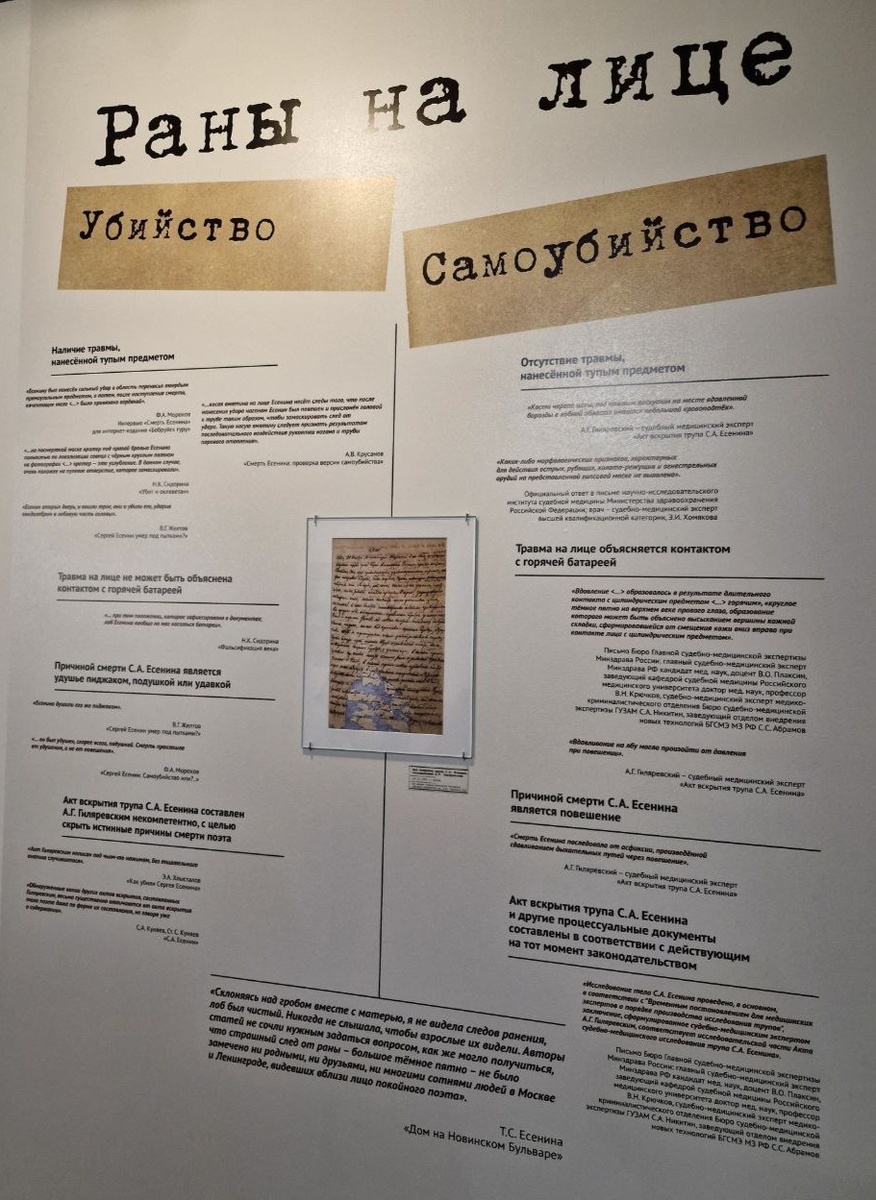 Раны на лице
Убийство
Наличие травмы,
нанесённой тупым предметом
«Есенину был нанесён сильный удар в область переносья твёрдым
предметом, а потом, после наступления смерти,
Ф.А. Морохов
Интервью «Смерть Есенина»
для интернет-издания «Бобруйск гуру»
«...на посмертной маске кратер под правой бровью Есенина
полностью по локализации совпал с чёрным круглым пятном
на фотографии <...> кратер – это углубление. В данном случае,
очень похожее на пулевое отверстие, которое замаскировали».
Н.К. Сидорина
«Убит и оклеветан»
В.Г. Желтов
«Сергей Есенин умер под пытками?»
«...косая вмятина на лице Есенина несёт следы того, что после
нанесения удара наганом Есенин был повешен и прислонён головой
к трубе таким образом, чтобы замаскировать след от
удара. Такую косую вмятину следует признать результатом
последовательного воздействия рукоятки нагана и трубы
парового отопления».
А.В. Крусанов
«Смерть Есенина: проверка версии самоубийства»
Травма на лице не может быть объяснена
контактом с горячей батареей
«... при том положении, которое зафиксировано в документах,
лоб Есенина вообще не мог касаться батареи».
Н.К. Сидорина
«Фальсификация века»
Причиной смерти С.А. Есенина является
удушье пиджаком, подушкой или удавкой
«Есенина душили его же пиджаком».
В.Г. Желтов
«Сергей Есенин умер под пытками?»
«... он был удушен, скорее всего, подушкой. Смерть произошла
от удушения, а не от повешения».
Ф.А. Морохов
«Сергей Есенин: Самоубийство или?..»
Акт вскрытия трупа С.А. Есенина составлен
А.Г. Гиляревским некомпетентно, с целью
скрыть истинные причины смерти поэта
«Акт Гиляревским написан под чьим-то нажимом, без тщательного
анализа случившегося».
Э.А. Хлысталов
«Как убили Сергея Есенина»
«Обнаруженные копии других актов вскрытия, составленных
Гиляревским, весьма существенно отличаются от акта вскрытия
тела поэта даже по форме их составления, не говоря уже
о содержании».
С.А. Куняев, Ст. С. Куняев
«С.А. Есенин»
Самоубийство
Отсутствие травмы,
нанесённой тупым предметом
«Кости черепа целы, под кожным лоскутом на месте вдавленной
борозды в лобной области имелся небольшой кровоподтёк».
А.Г. Гиляревский – судебный медицинский эксперт
«Акт вскрытия трупа С.А. Есенина»
«Каких-либо морфологических признаков, характерных
для действия острых, рубящих, колото-режущих и огнестрельных
орудий на представленной гипсовой маске не выявлено».
Официальный ответ в письме научно-исследовательского
института судебной медицины Министерства здравоохранения
Российской Федерации; врач – судебно-медицинский эксперт
высшей квалификационной категории, З.И. Хомякова
Травма на лице объясняется контактом
с горячей батареей
«Вдавление <...> образовалось в результате длительного
контакта с цилиндрическим предметом <...> горячим», «круглое
тёмное пятно на верхнем веке правого глаза, образование
которого может быть объяснено высыханием вершины кожной
складки, сформировавшейся от смещения кожи вниз вправо при
контакте лица с цилиндрическим предметом».
Письмо Бюро Главной судебно-медицинской экспертизы
Минздрава России: главный судебно-медицинский эксперт
Минздрава РФ кандидат мед. наук, доцент В.О. Плаксин,
заведующий кафедрой судебной медицины Российского
медицинского университета доктор мед. наук, профессор
В.Н. Крючков, судебно-медицинский эксперт медико-
криминалистического отделения Бюро судебно-медицинской
экспертизы ГУЗАМ С.А. Никитин, заведующий отделом внедрения
новых технологий БГСМЭ МЗ РФ С.С. Абрамов
«Вдавливание на лбу могло произойти от давления
при повешении».
А.Г. Гиляревский – судебный медицинский эксперт
«Акт вскрытия трупа С.А. Есенина»
Причиной смерти С.А. Есенина
является повешение
«Смерть Есенина последовала от асфиксии, произведённой
сдавливанием дыхательных путей через повешение».
А.Г. Гиляревский – судебный медицинский эксперт
«Акт вскрытия трупа С.А. Есенина»
Акт вскрытия трупа С.А. Есенина
и другие процессуальные документы
составлены в соответствии с действующим
на тот момент законодательством
«Исследование тела С.А. Есенина проведено, в основном,
в соответствии с "Временным постановлением для медицинских
экспертов о порядке производства исследования трупов",
заключение, сформулированное судебно-медицинским экспертом
А.Г. Гиляревским, соответствует исследовательской части Акта
судебно-медицинского исследования трупа С.А. Есенина».
Письмо Бюро Главной судебно-медицинской экспертизы
Минздрава России: главный судебно-медицинский эксперт
Минздрава РФ кандидат мед. наук, доцент В.О. Плаксин,
заведующий кафедрой судебной медицины Российского
медицинского университета доктор мед. наук, профессор
В.Н. Крючков, судебно-медицинский эксперт медико-
криминалистического отделения Бюро судебно-медицинской
экспертизы ГУЗАМ С.А. Никитин, заведующий отделом внедрения
новых технологий БГСМЭ МЗ РФ С.С. Абрамов
«Склоняясь над гробом вместе с матерью, я не видела следов ранения,
лоб был чистый. Никогда не слышала, чтобы взрослые их видели. Авторы
статей не сочли нужным задаться вопросом, как же могло получиться,
что страшный след от раны – большое тёмное пятно – не было
замечено ни родными, ни друзьями, ни многими сотнями людей в Москве
и Ленинграде, видевших вблизи лицо покойного поэта».
Т.С. Есенина
«Дом на Новинском Бульваре»